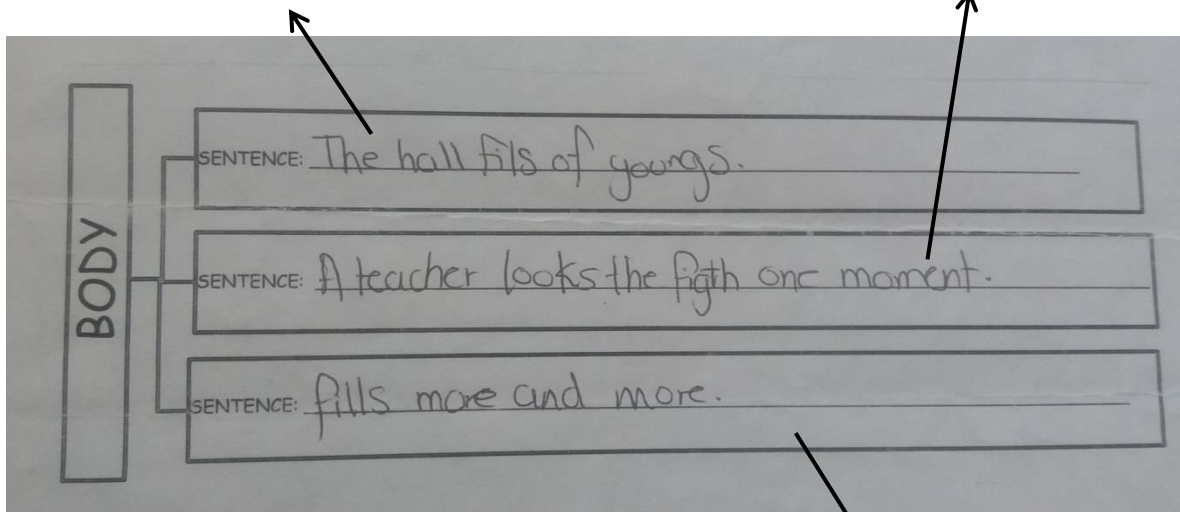 BODY
SENTENCE: The hall fils of youngs.
SENTENCE: A teacher looks the figth one moment.
SENTENCE: fills more and more.